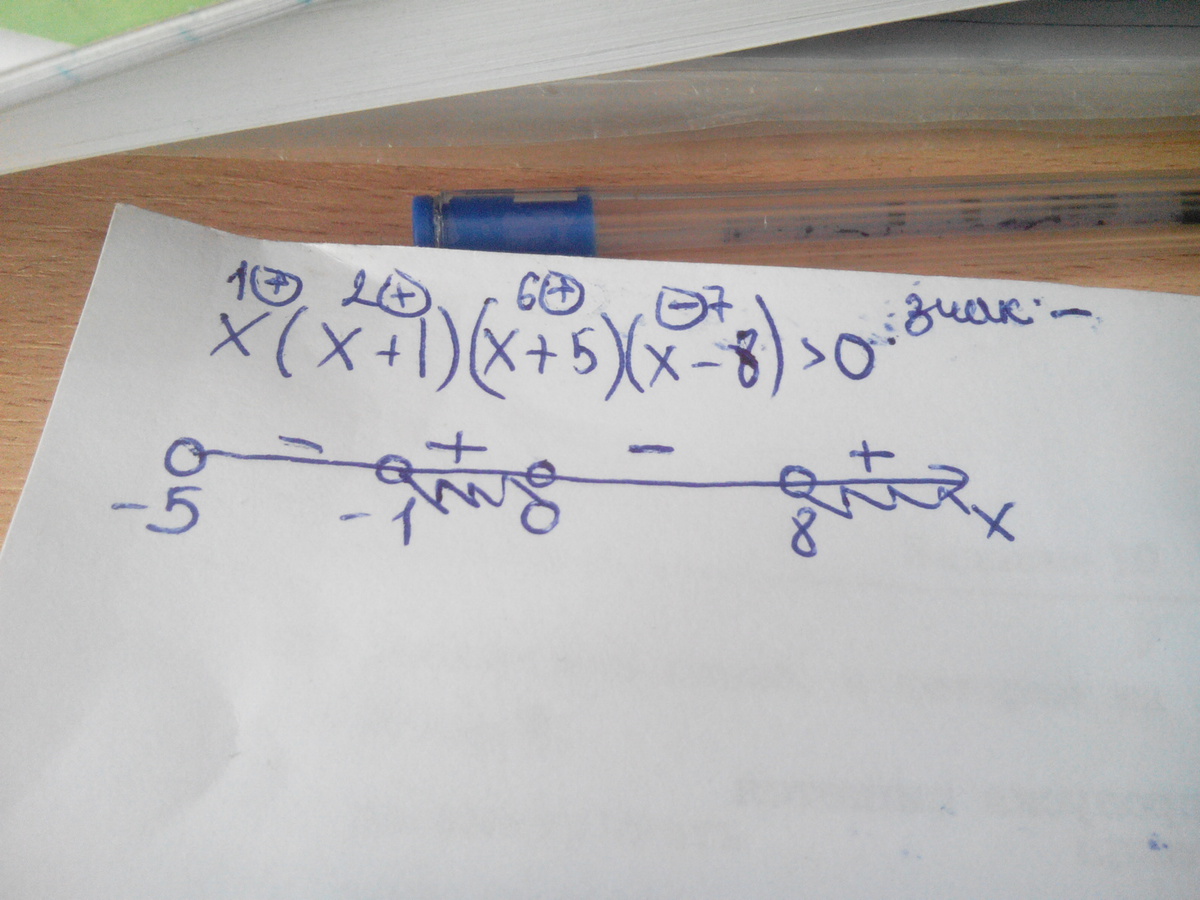 1⊕ 2⊕ 6⊕ ⊖7 знак: -
x(x+1)(x+5)(x-8)>0
- + - +
-5 -1 0 8 x